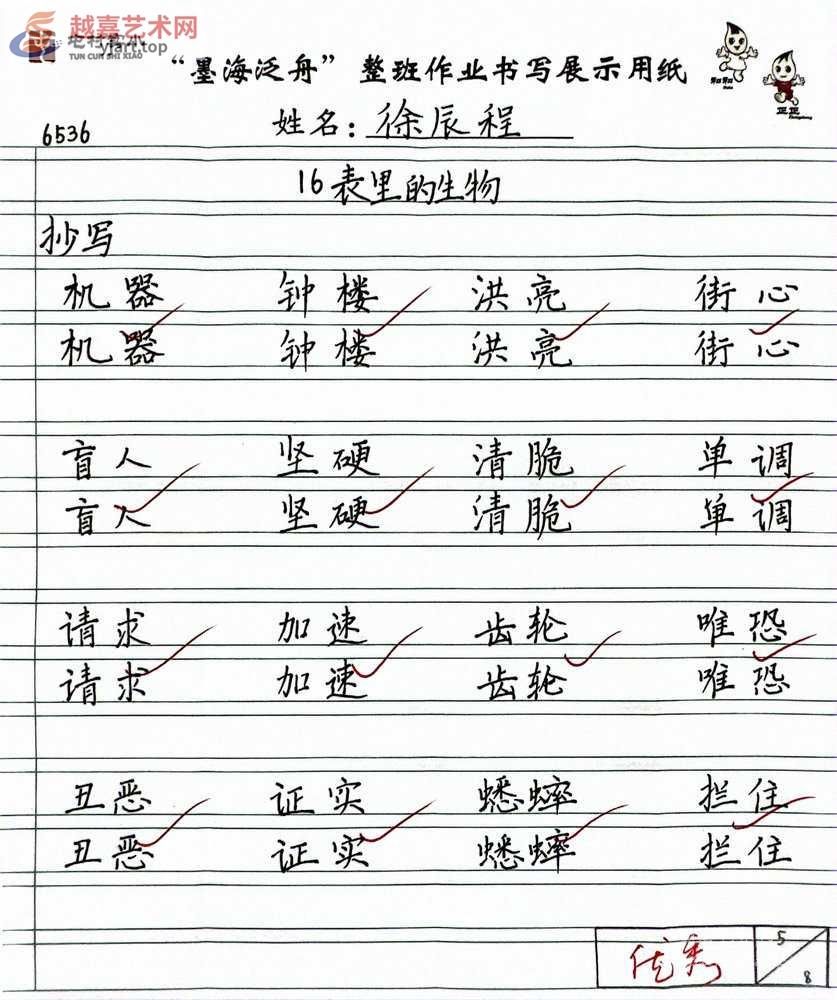 越嘉艺术网
yjart.top
TUN CUN SHI XIAO
“墨海泛舟”整班作业书写展示用纸
6536
姓名：徐辰程
16表里的生物
抄写
机器 钟楼 洪亮 街心
机器 钟楼 洪亮 街心
盲人 坚硬 清脆 单调
盲人 坚硬 清脆 单调
请求 加速 齿轮 唯恐
请求 加速 齿轮 唯恐
丑恶 证实 蟋蟀 拦住
丑恶 证实 蟋蟀 拦住
优秀
5
8